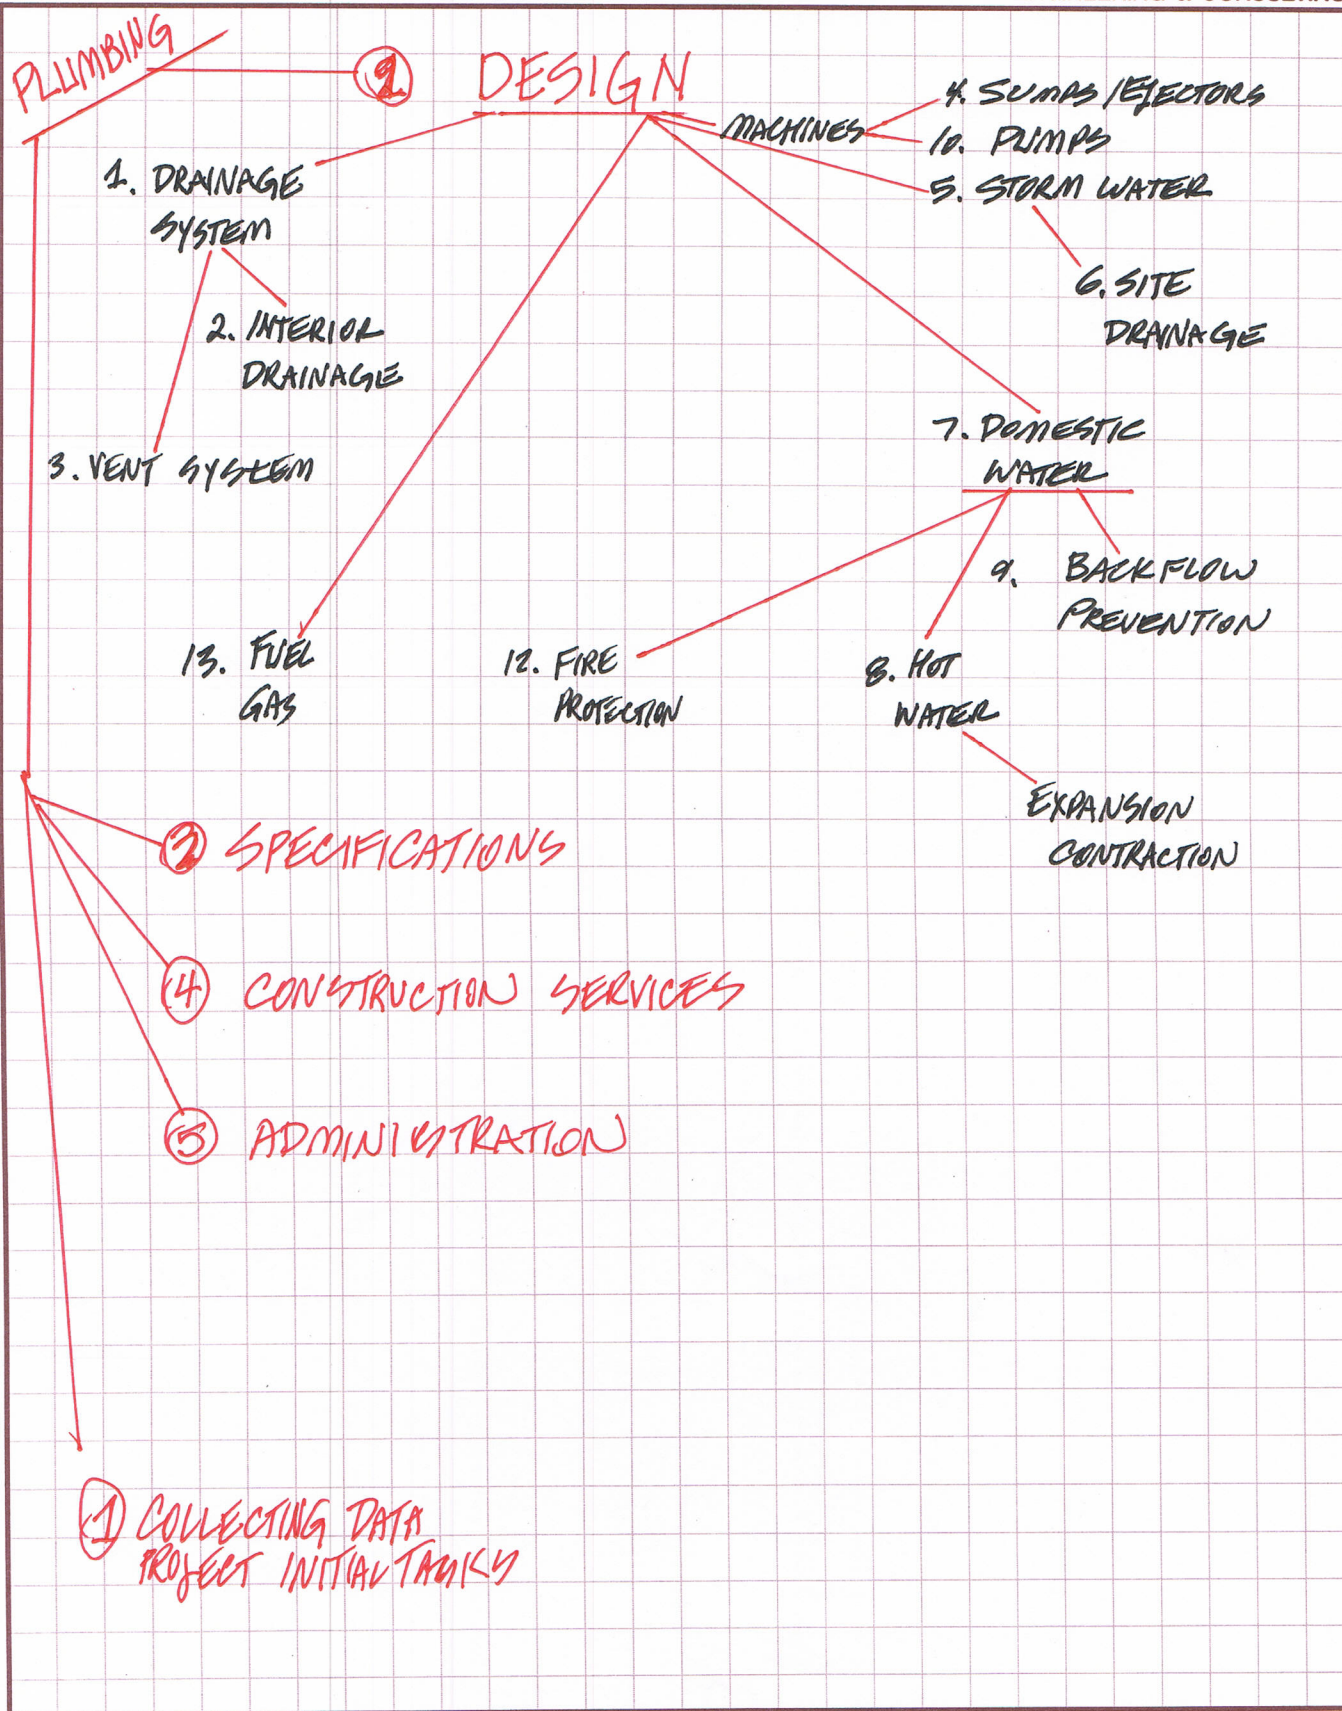 PLUMBING
2 DESIGN
MACHINES
4. SUMPS/EJECTORS
10. PUMPS
5. STORM WATER
6. SITE
DRAINAGE
1. DRAINAGE
SYSTEM
2. INTERIOR
DRAINAGE
3. VENT SYSTEM
7. DOMESTIC
WATER
9. BACKFLOW
PREVENTION
13. FUEL
GAS
12. FIRE
PROTECTION
8. HOT
WATER
EXPANSION
CONTRACTION
3 SPECIFICATIONS
4 CONSTRUCTION SERVICES
5 ADMINISTRATION
1 COLLECTING DATA
PROJECT INITIAL TASKS